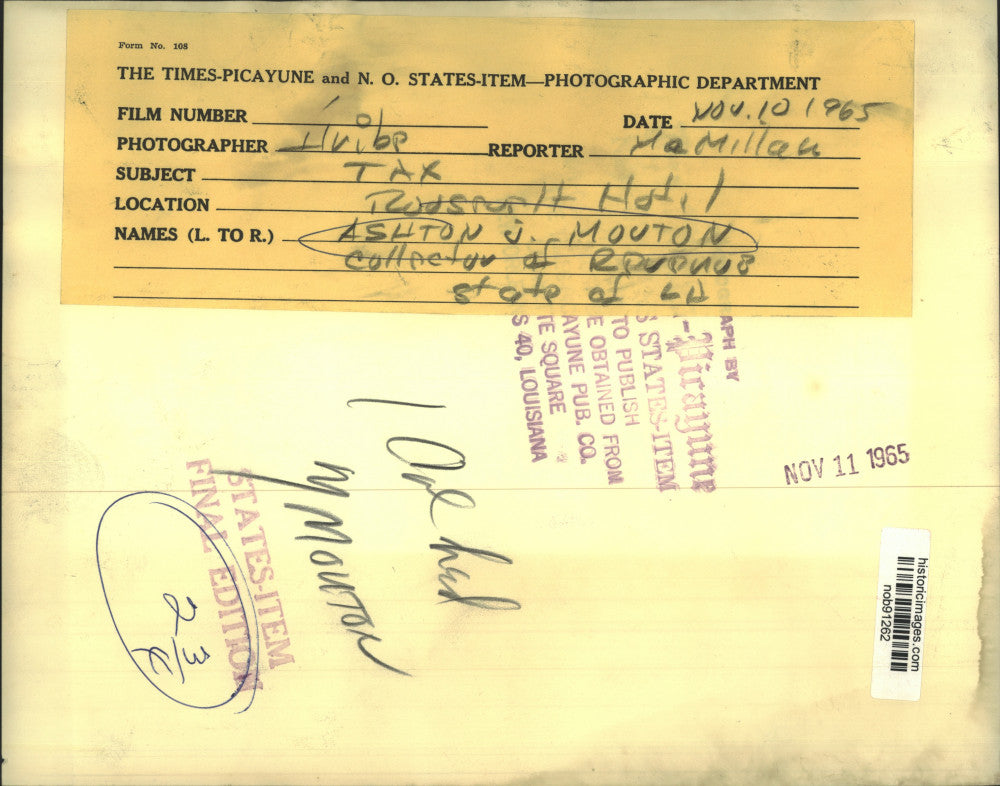 Form No. 108
THE TIMES-PICAYUNE and N. O. STATES-ITEM—PHOTOGRAPHIC DEPARTMENT
FILM NUMBER
DATE NOV. 10 1965
PHOTOGRAPHER
REPORTER McMillan
SUBJECT TAX
LOCATION Roosevelt Hotel
NAMES (L. TO R.) ASHTON J. MOUTON
Collector of Revenue
State of LA
APH BY
-Picayune
STATES-ITEM
TO PUBLISH
E OBTAINED FROM
AYUNE PUB. CO.
TE SQUARE
S 40, LOUISIANA
NOV 11 1965
1 Col hed
MOUTON
STATES-ITEM
FINAL EDITION
historicimages.com
nob91262